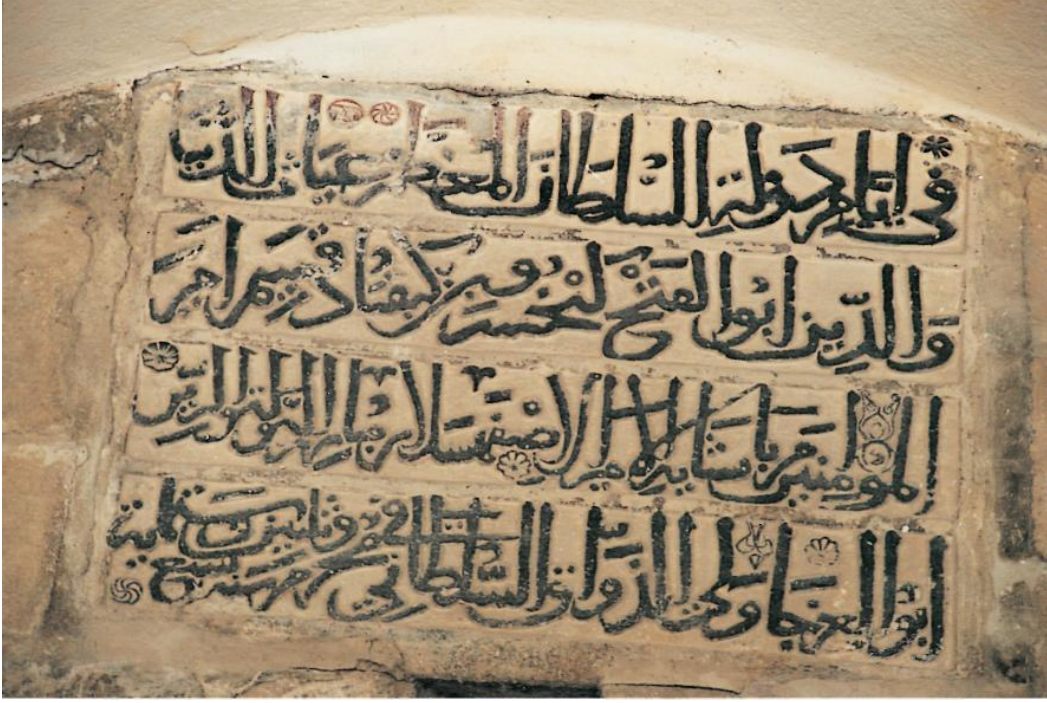 في ايام دولة السلطان المعظم غياث الدنيا
والدين ابوا الفتح كيخسرو بن كيقباد قسيم امير
المومنين بانشايه الامير الاصفهسلار مبارز الدولة والدين
ابوا جاولي السلطاني في محرم سنة تسع وثلثين وستماية